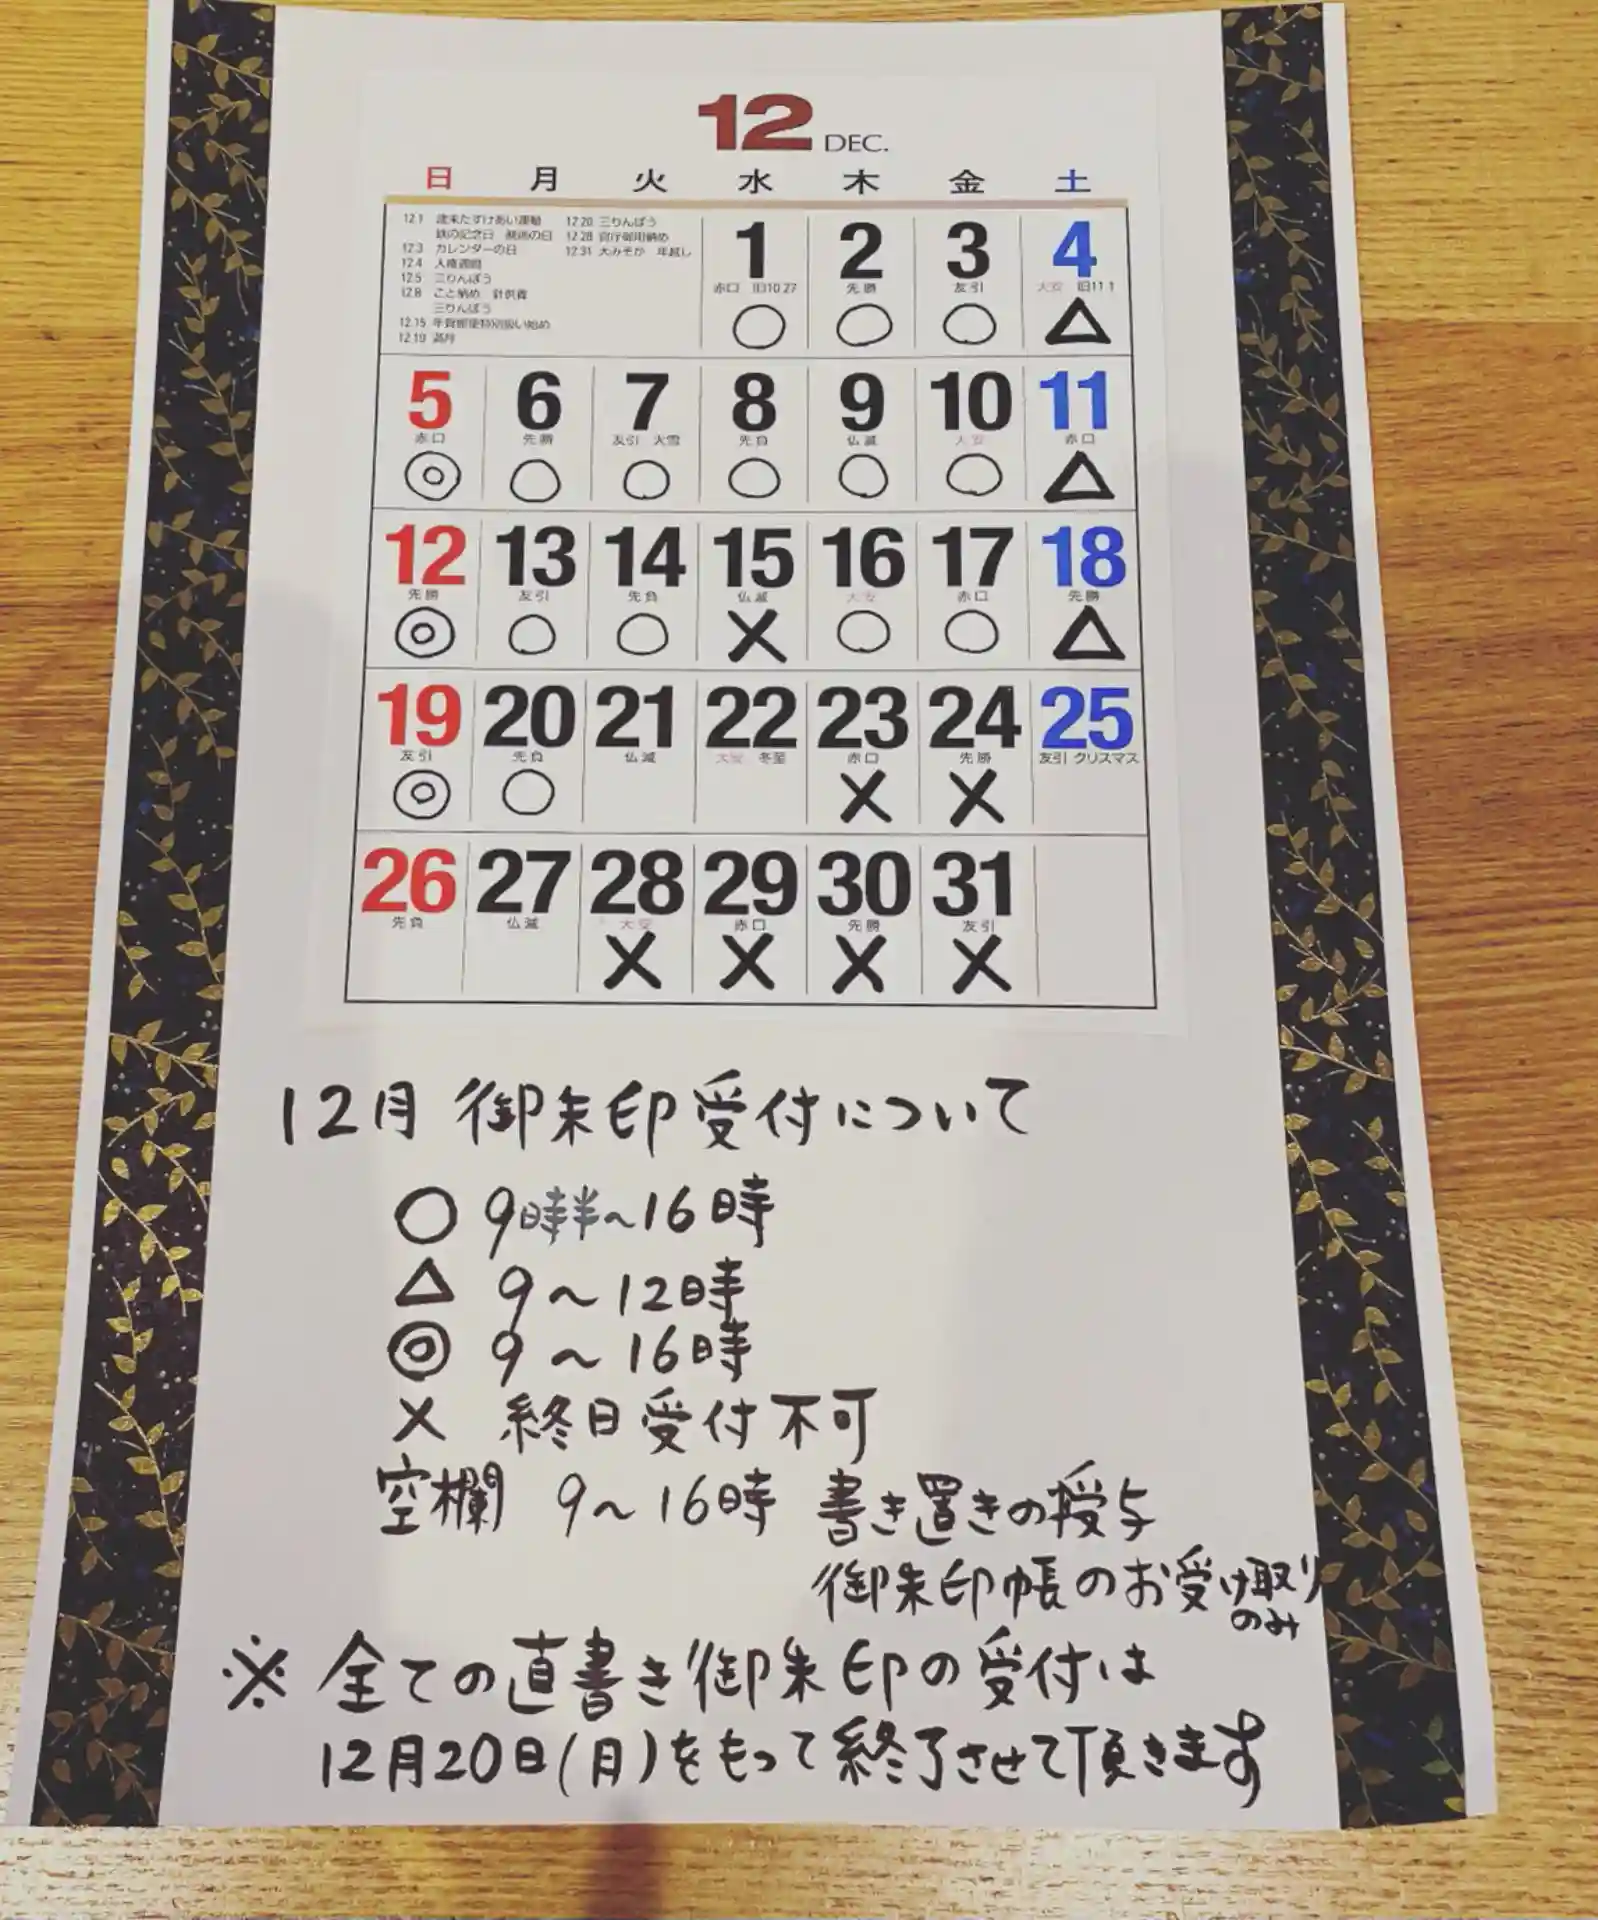 12 DEC.
日 月 火 水 木 金 土
12.1 歳末たすけあい運動
鉄の記念日 映画の日
12.3 カレンダーの日
12.4 人権週間
12.5 三りんぼう
12.8 こと納め 針供養
三りんぼう
12.15 年賀郵便特別扱い始め
12.19 満月
12.20 三りんぼう
12.28 官庁御用納め
12.31 大みそか 年越し
1 2 3 4
赤口 旧10.27 先勝 友引 大安 旧11.1
○ ○ ○ △
5 6 7 8 9 10 11
赤口 先勝 友引 大雪 先負 仏滅 大安 赤口
◎ ○ ○ ○ ○ ○ △
12 13 14 15 16 17 18
先勝 友引 先負 仏滅 大安 赤口 先勝
◎ ○ ○ × ○ ○ △
19 20 21 22 23 24 25
友引 先負 仏滅 大安 冬至 赤口 先勝 友引 クリスマス
◎ ○ × ×
26 27 28 29 30 31
先負 仏滅 大安 赤口 先勝 友引
× × × ×
12月 御朱印受付について
○ 9時半~16時
△ 9~12時
◎ 9~16時
× 終日受付不可
空欄 9~16時 書き置きの授与
御朱印帳のお受け取り
のみ
※ 全ての直書き御朱印の受付は
12月20日(月)をもって終了させて頂きます